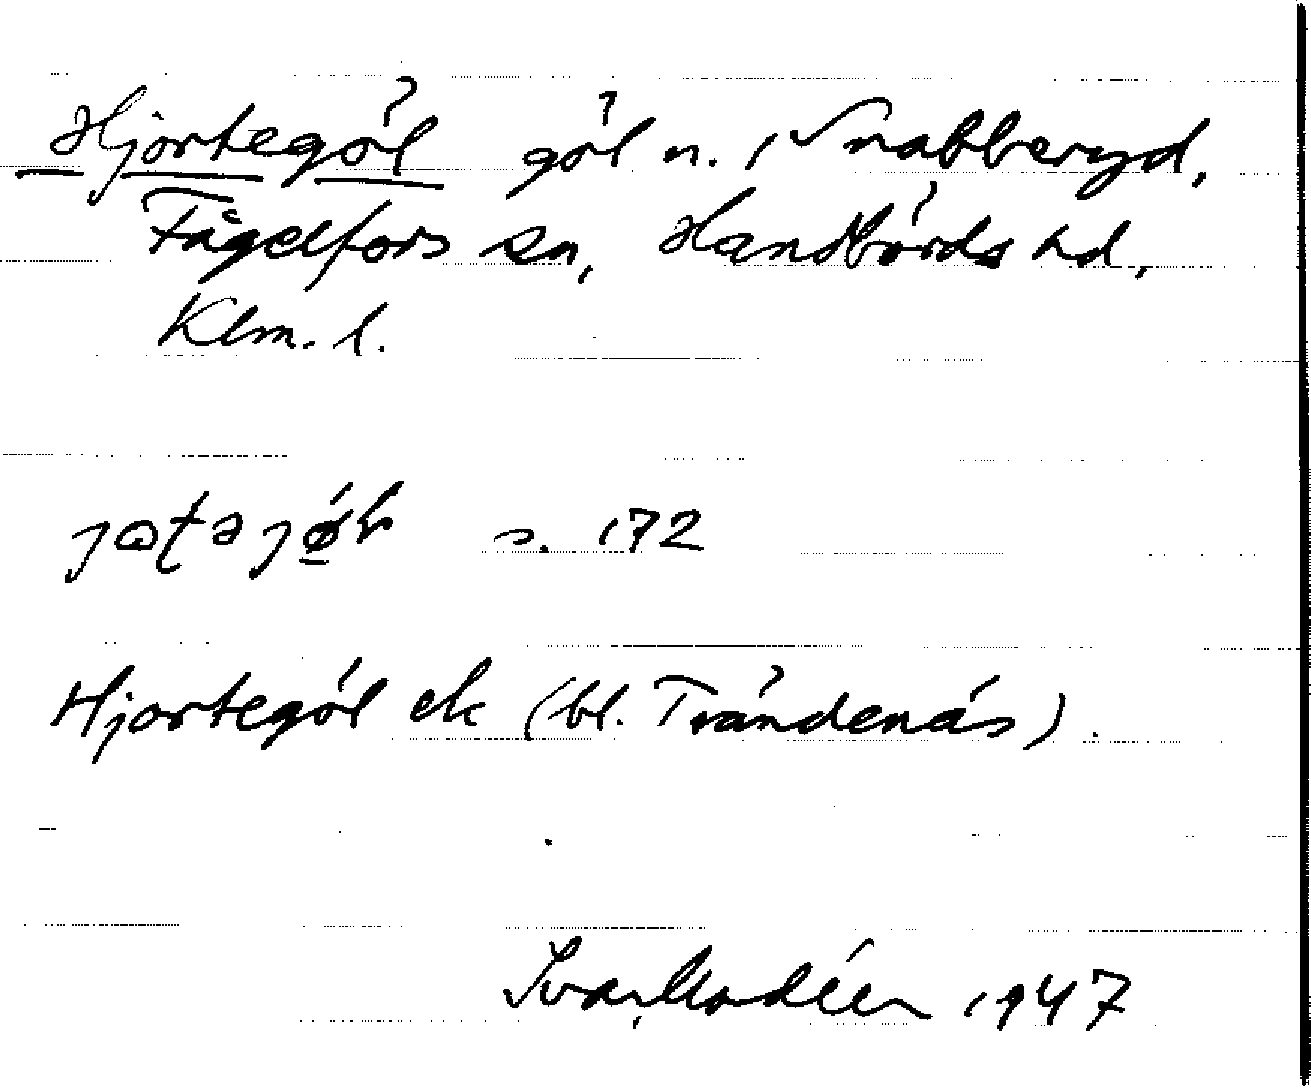 Hjortegöl göl n. i Snabberyd,
Fågelfors sn, Handbörds hd,
Klm. l.
s. 172
Hjortegöl ek (bl. Trändenäs).
Ivar Modéer 1947